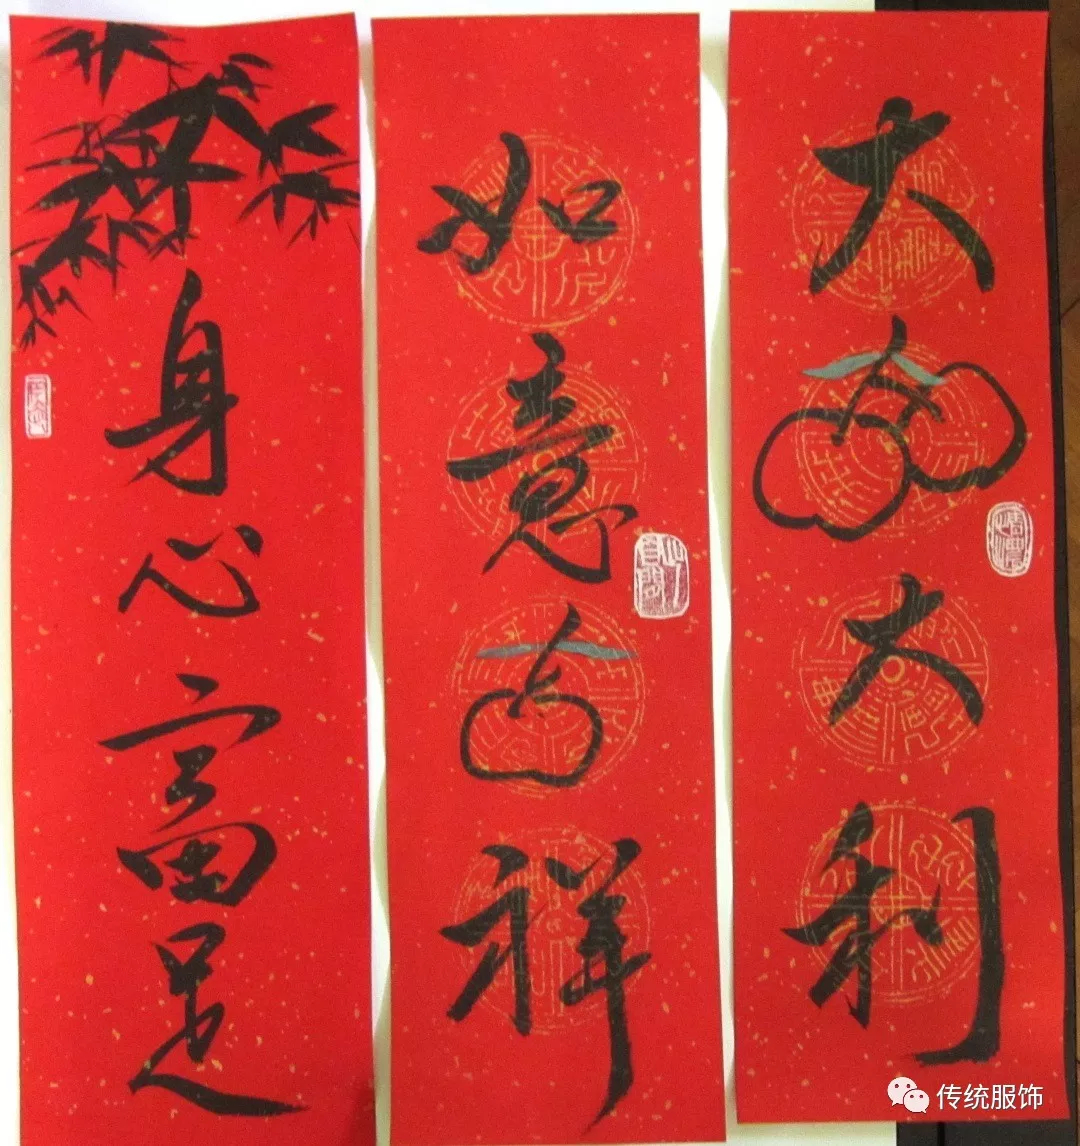 大吉大利
如意吉祥
身心富足
传统服饰